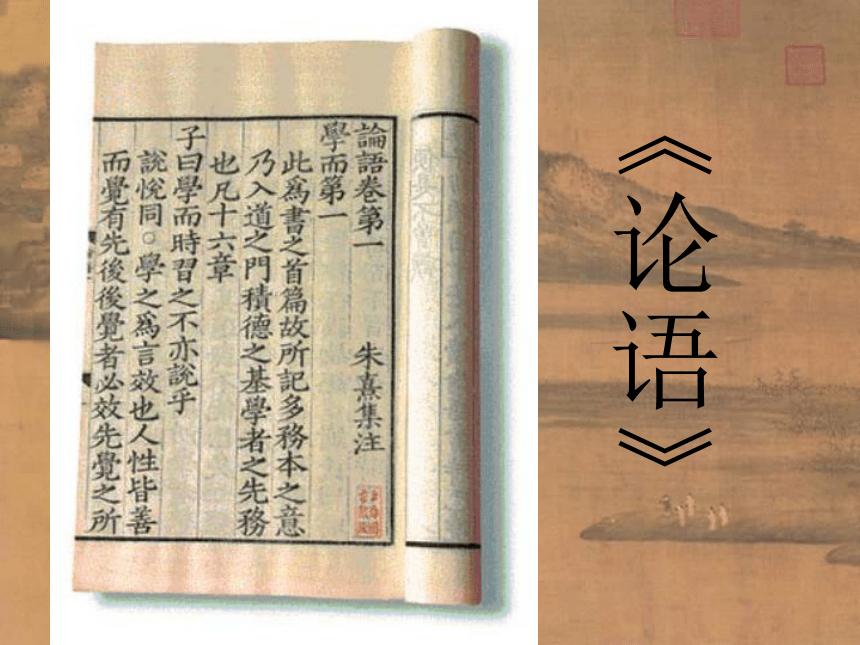 論語卷第一 朱熹集注
學而第一
此爲書之首篇故所記多務本之意
乃入道之門積德之基學者之先務
也凡十六章
子曰學而時習之不亦說乎
說悅同○學之爲言效也人性皆善
而覺有先後後覺者必效先覺之所
《论语》